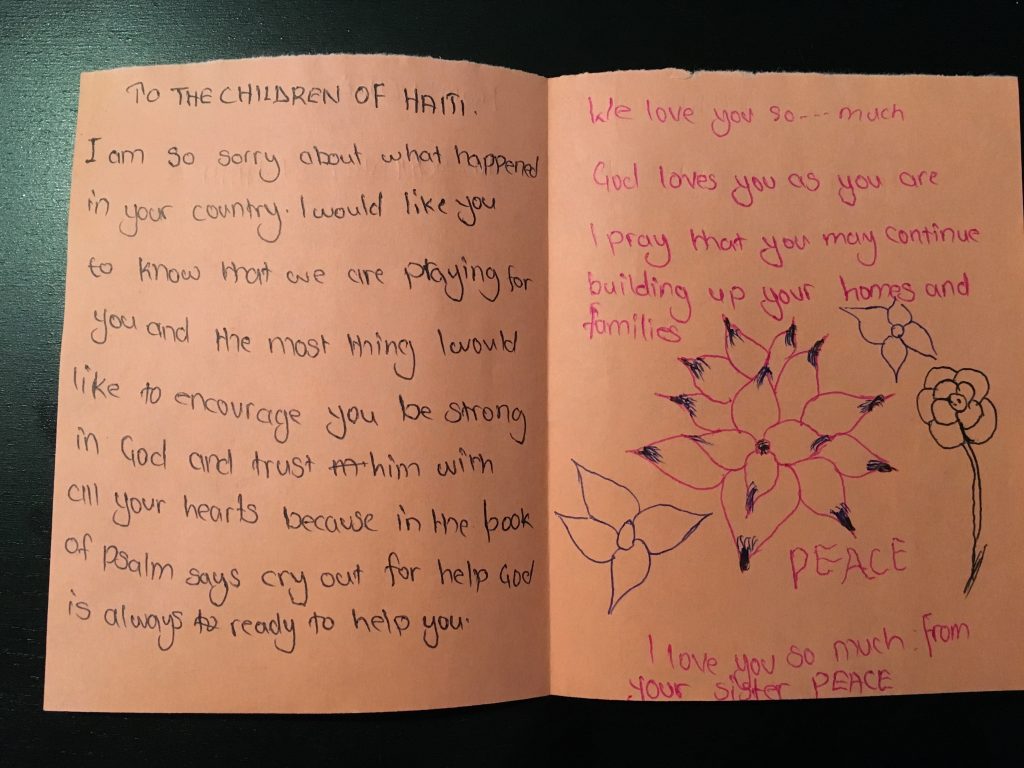 TO THE CHILDREN OF HAITI.
I am so sorry about what happened
in your country. I would like you
to know that we are praying for
you and the most thing I would
like to encourage you be strong
in God and trust him with
all your hearts because in the book
of psalm says cry out for help God
is always ready to help you.
We love you so---much
God loves you as you are
I pray that you may continue
building up your homes and
families
PEACE
I love you so much. from
your sister PEACE